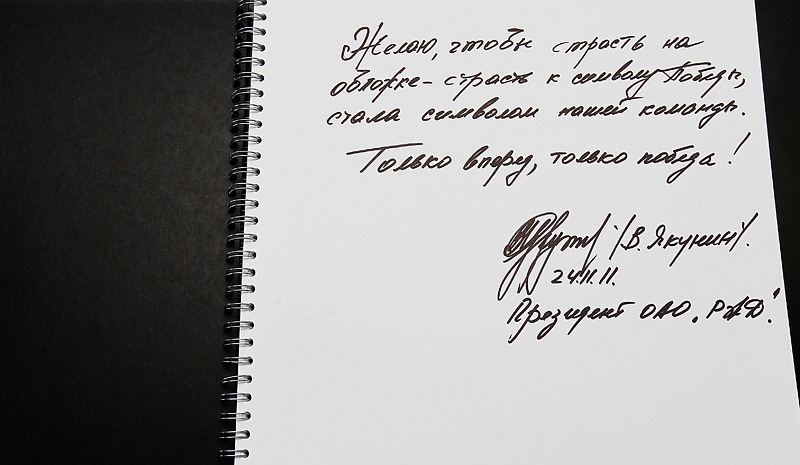 Желаю, чтобы страсть на
обложке – страсть к символу Победы,
стала символом нашей команды.
Только вперед, только победа!
/В. Якунин/.
24.11.11.
Президент ОАО „РЖД".